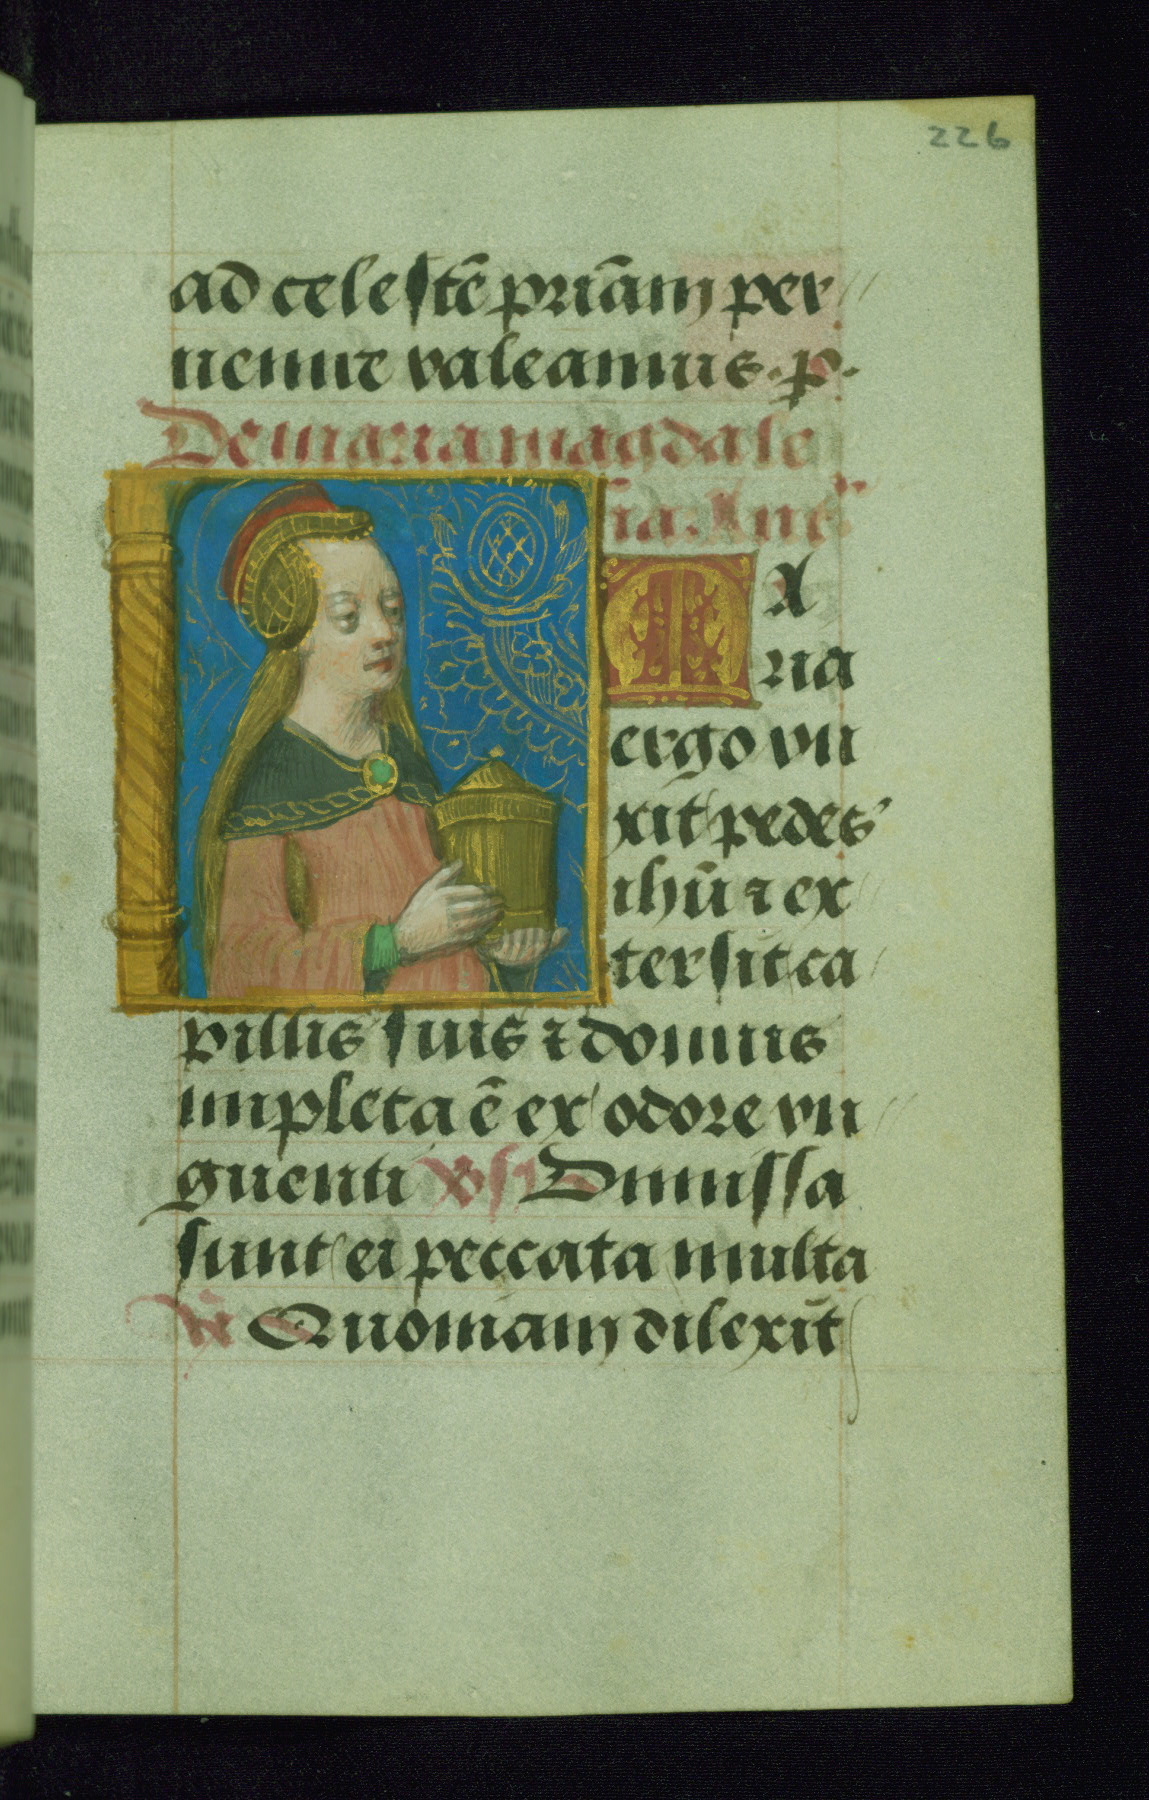 226
ad celestē priā̄m per
uenire valeamus. p̄.
De maria magdale
na. Anē
MA
ria
ergo vn
xit pedes
ihū ⁊ ex
tersit ca
pillis suis ⁊ domus
impleta ē ex odore vn
guenti Vs̄ Dimissa
sunt ei peccata multa
R̄ Quoniam dilexit